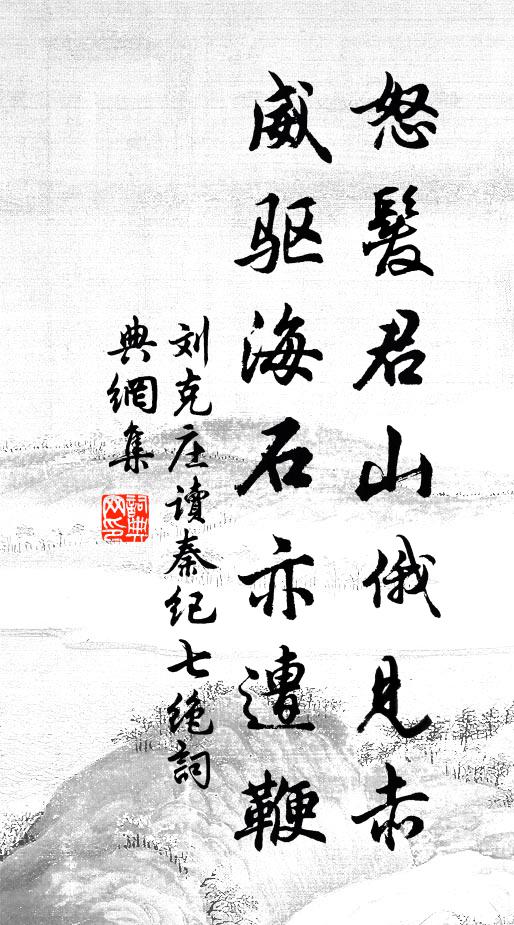 怒髮君山俄見赤
威驱海石亦遭鞭
刘克庄讀秦纪七绝詞
典網集
詞典网印